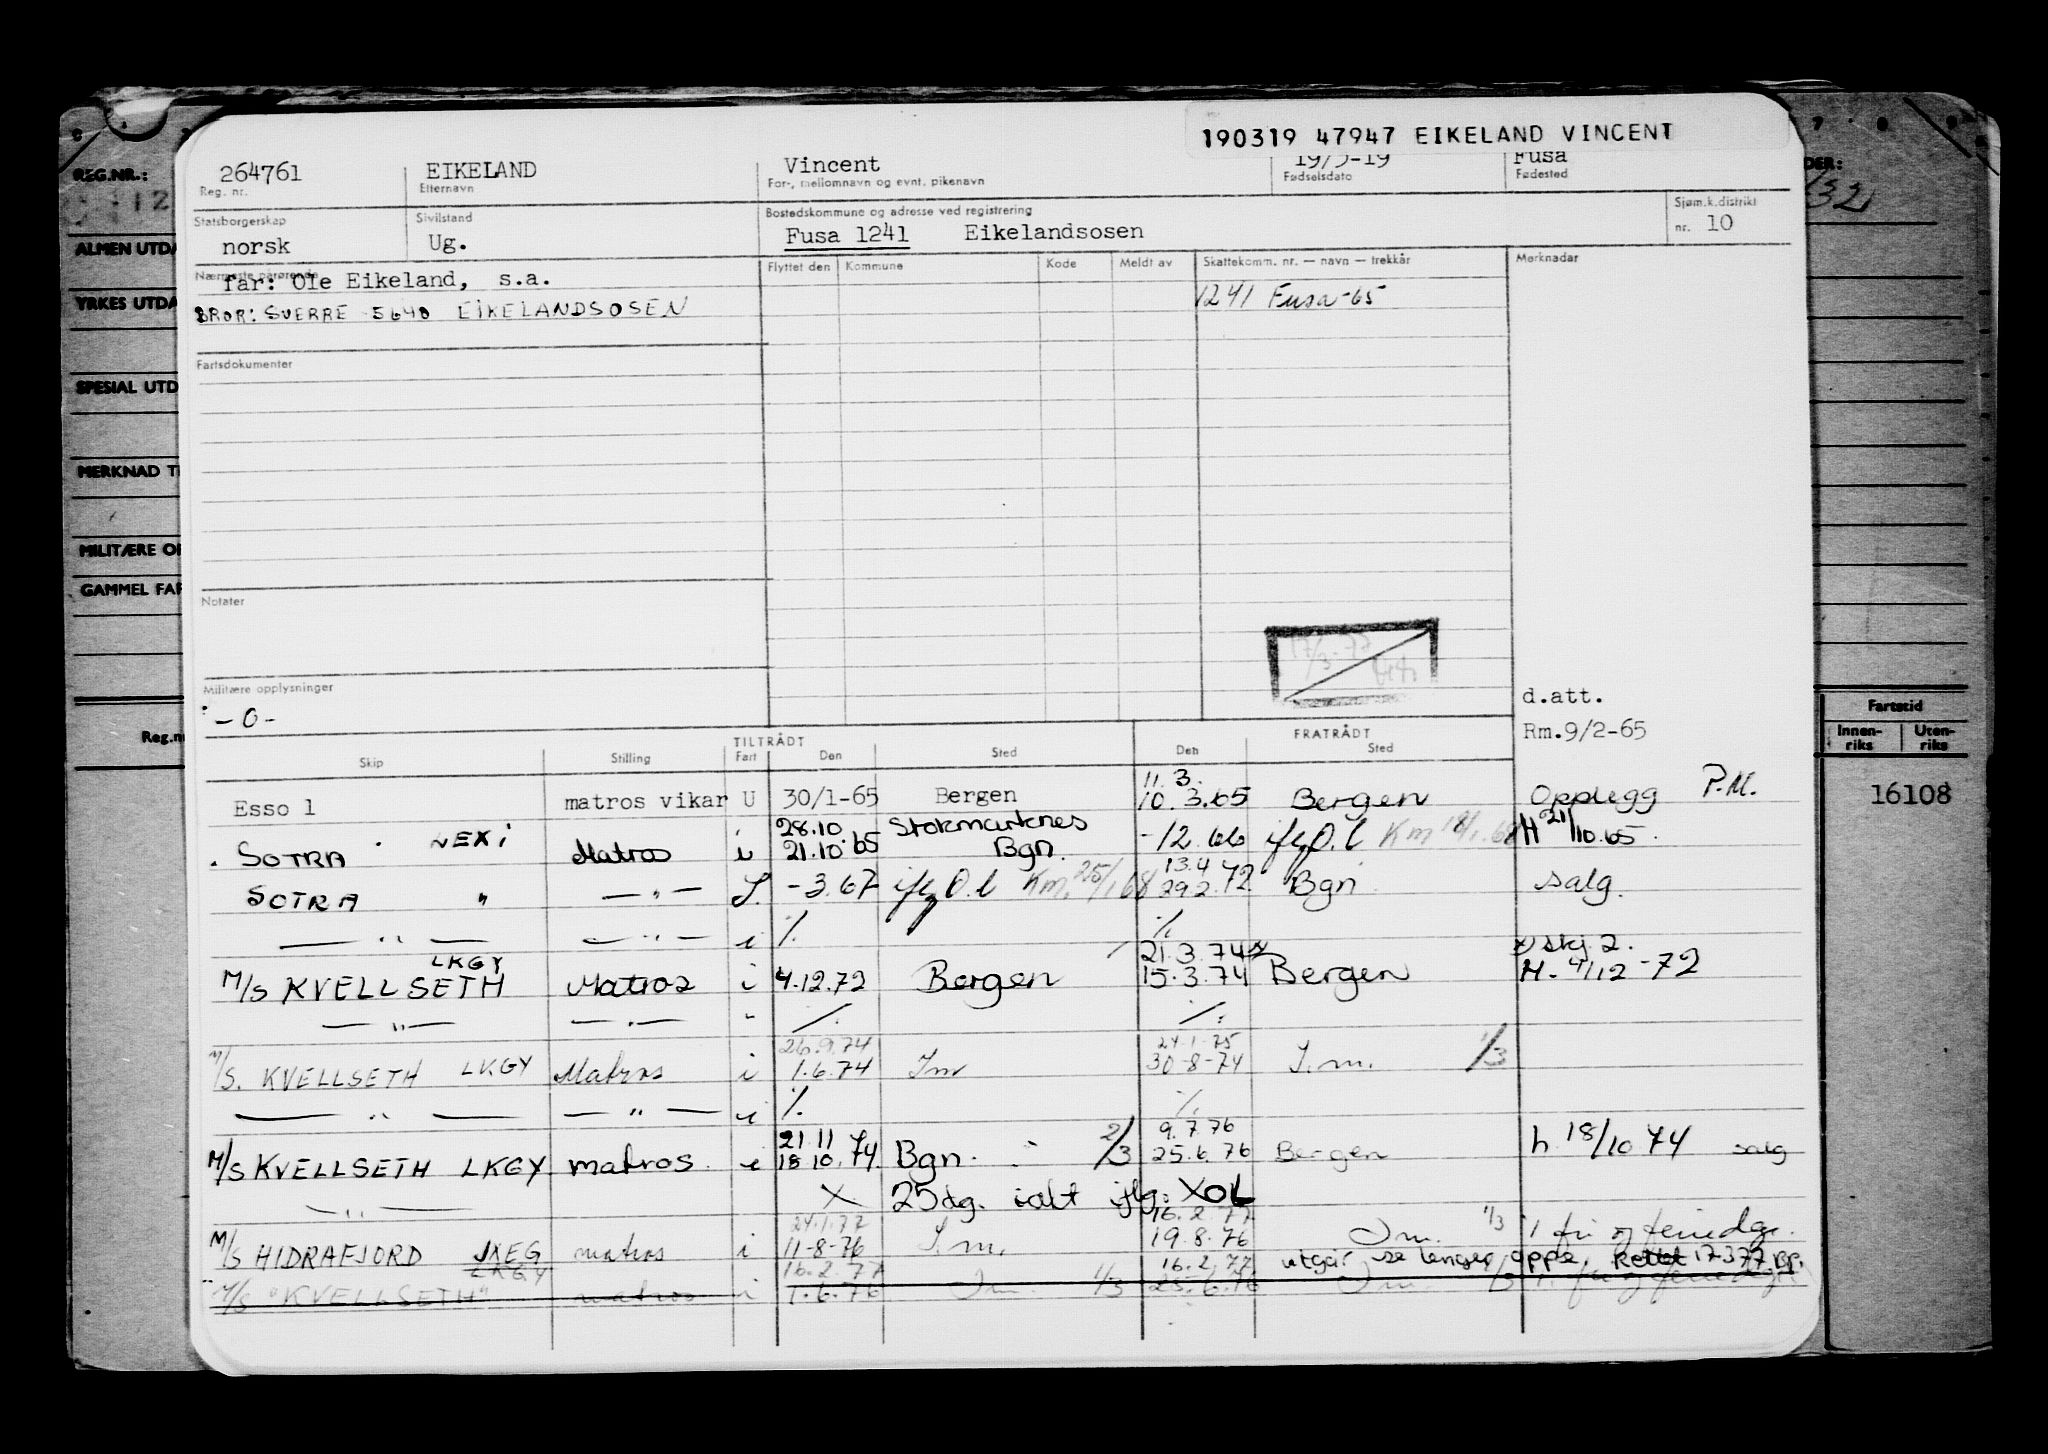 190319 47947 EIKELAND VINCENT
264761 EIKELAND Vincent 19/3-19 Fusa
Reg. nr. Etternavn For-, mellomnavn og evnt. pikenavn Fødselsdato Fødested
Statsborgerskap Sivilstand Bostedskommune og adresse ved registrering Sjøm.k.distrikt
norsk Ug. Fusa 1241 Eikelandsosen nr. 10
Nærmeste pårørende Flyttet den Kommune Kode Meldt av Skattekomm. nr. — navn — trekkår Merknader
far: Ole Eikeland, s.a.
1241 Fusa-65
BROR: SVERRE 5640 EIKELANDSOSEN
Fartsdokumenter
Notater
17/3-77
Militære opplysninger
-0-
d.att.
Rm.9/2-65
TILTRÅDT FRATRÅDT
Skip Stilling Fart Den Sted Den Sted
11.3.
Esso 1 matros vikar U 30/1-65 Bergen 10.3.65 Bergen Opplegg P.M.
28.10 Stokmarknes
SOTRA LEXI Matros i 21.10.65 Bgn. -12.66 iflg O.l Km 18/1.68 H 21/10.65.
13.4
SOTRA " — " — S. -3.67 iflg O.l Km. 25/1 68 29.2.72 Bgn. salg.
— " — — " — i % %
LKGY 21.3.74 x x) skj 2.
M/S KVELLSETH Matros i 4.12.72 Bergen 15.3.74 Bergen H. 4/12-72
— " — — " — " % %
26.9.74 24.1.75
M/S. KVELLSETH LKGY Matros i 1.6.74 Im 30-8-74 I.m. 1/3
— " — — " — i % %
21.11 9.7.76
M/S KVELLSETH LKGY matros. i 18.10.74. Bgn. 2/3 25.6.76 Bergen h. 18/10 74 salg
— " — X 25dg. ialt iflg. XOL
24.1.77 16.2.77
M/S HIDRAFJORD JXEG matros i 11-8-76 I.m. 19.8.76 I.m. 1/3 i fri og feriedgr.
LKGY 16.2.77 16.2.77 utgår se lenger oppe, Rettet 17.3.77
M/S "KVELLSETH" matros i 1.6.76 I.m. 1/3 25.6.76 I.m. 1/3 i fri og feriedgr
REG.NR.:
12
ALMEN UTDA
YRKES UTDA
SPESIAL UTD
MERKNAD T
MILITÆRE O
GAMMEL FAR
Reg.n
DER:
Fartstid
Innen-riks Uten-riks
16108